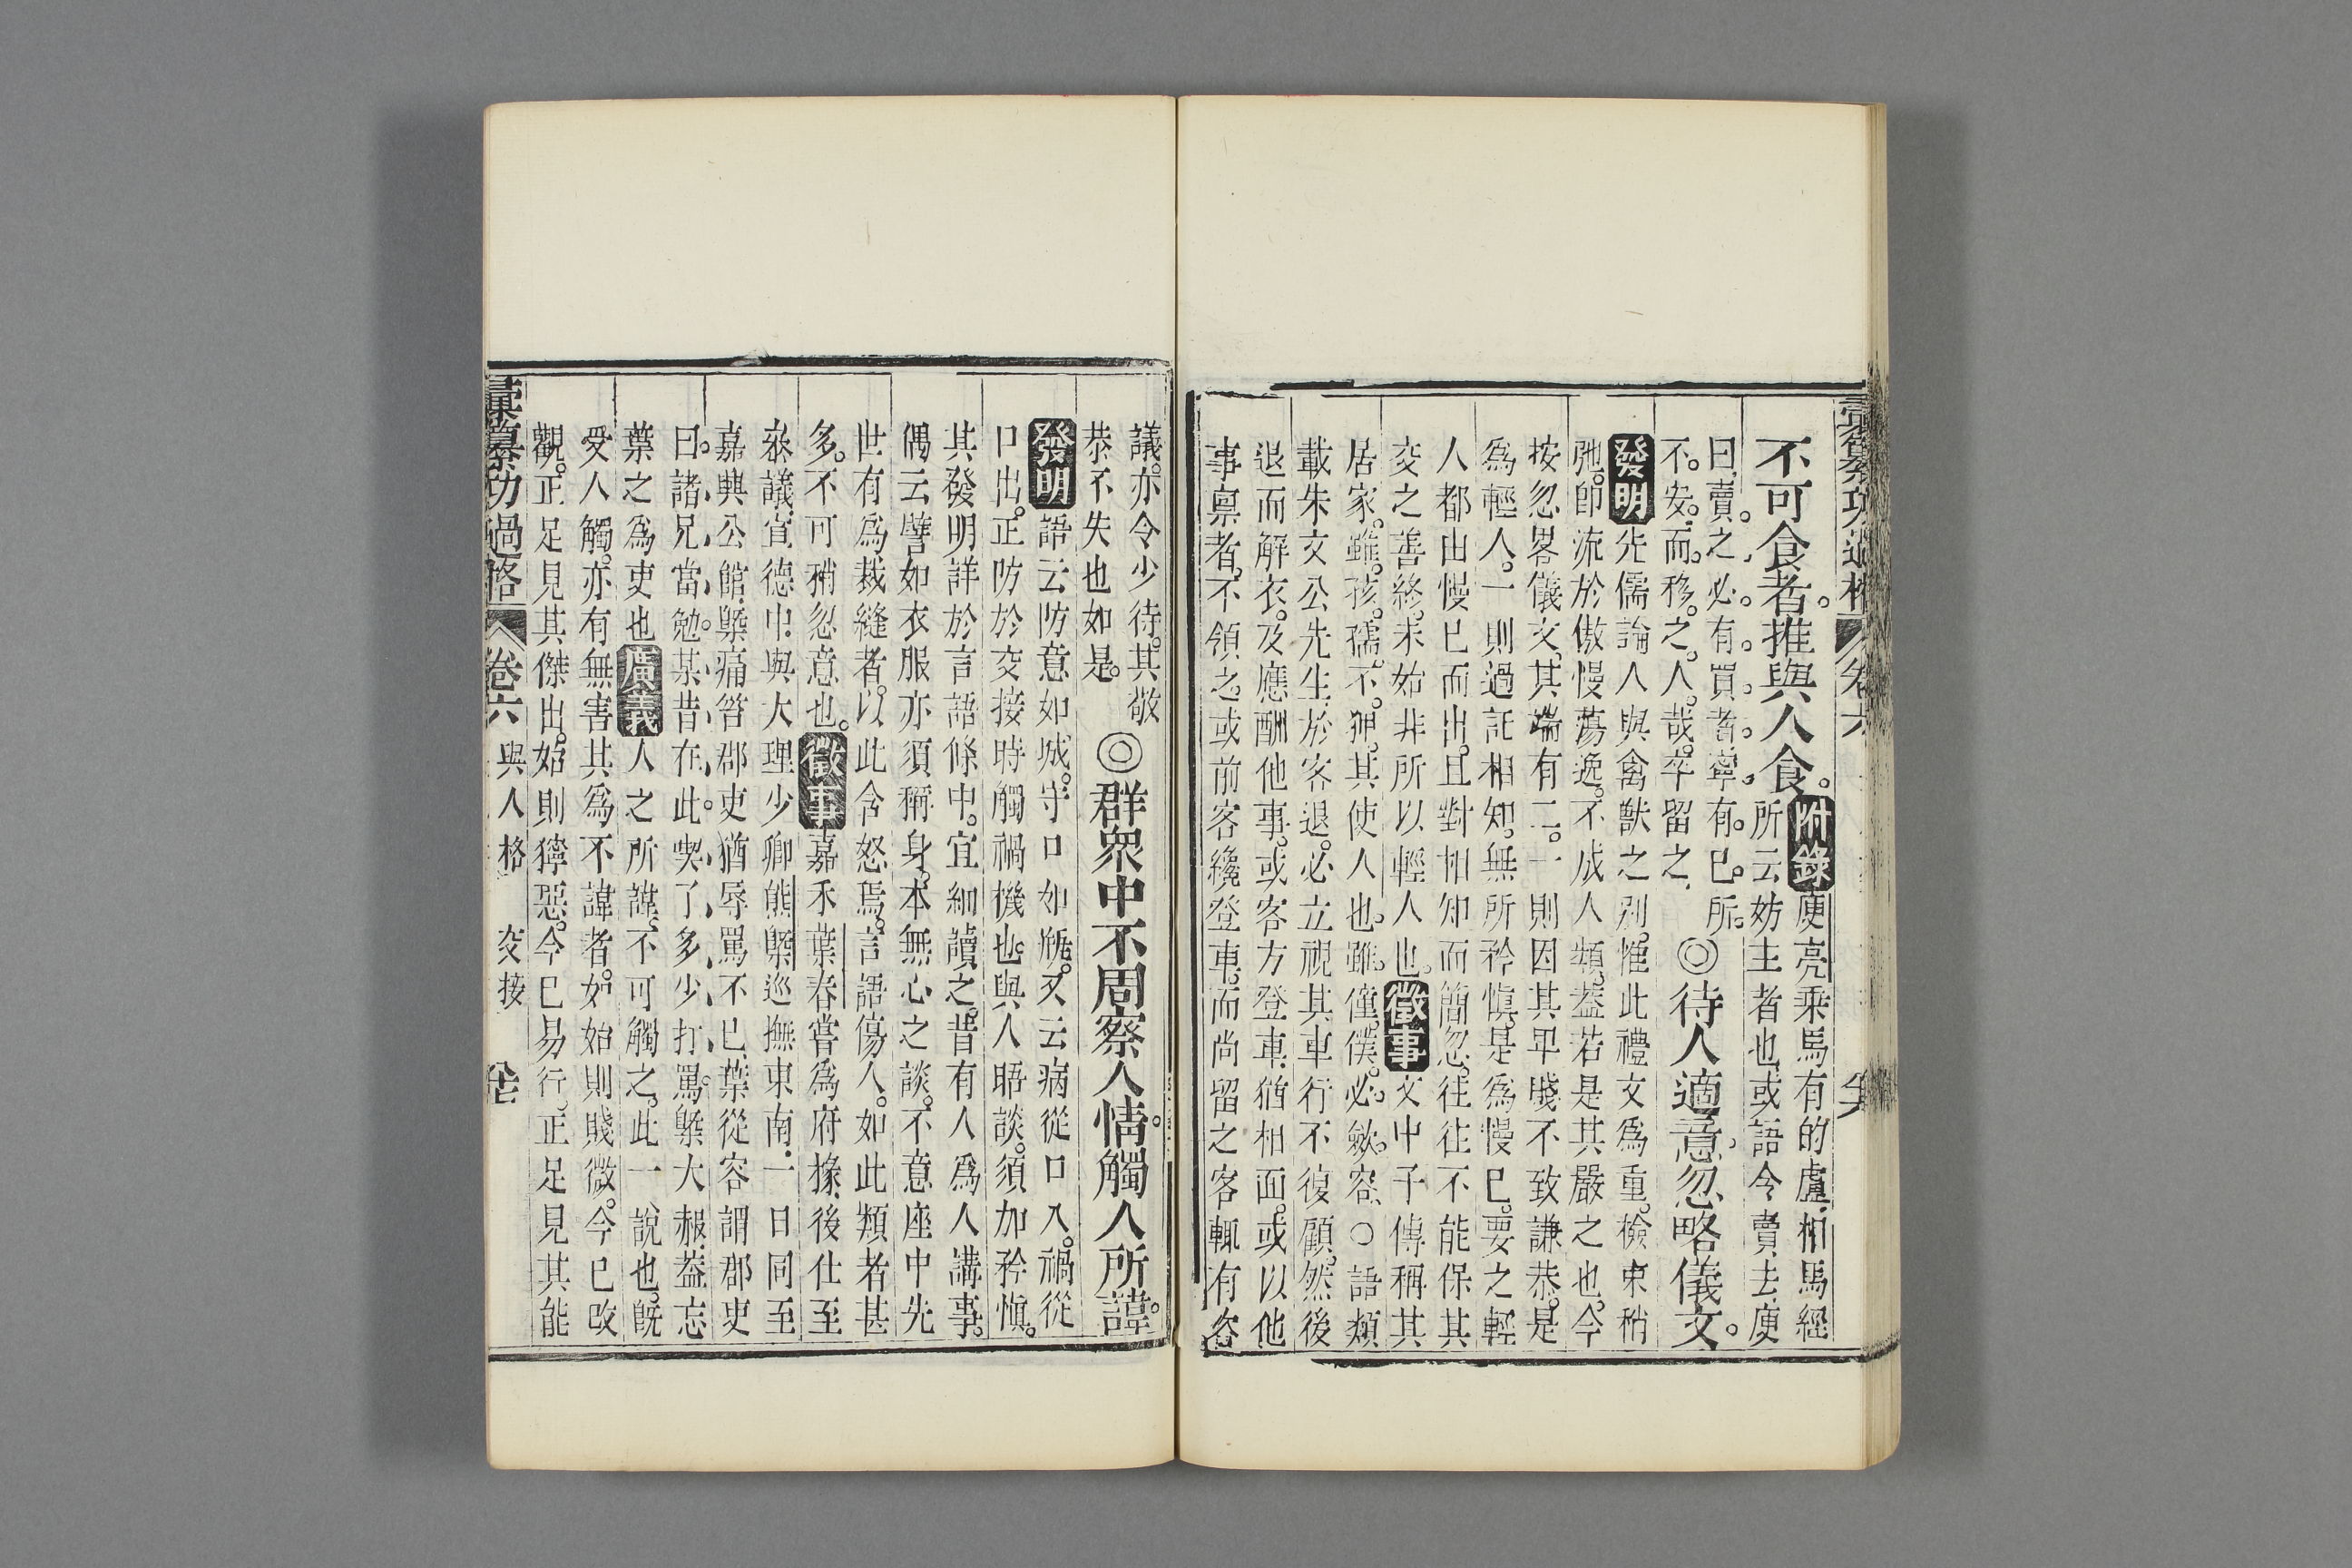 彙纂功過格 卷六
不可食者推與人食。附錄庾亮乘馬有的盧相馬經
所云妨主者也或語令賣去庾
曰賣之必有買者寧有已所
不安而移之人哉卒留之 ◎待人適意忽略儀文。
發明先儒論人與禽獸之別。惟此禮文爲重。檢束稍
弛。卽流於傲慢蕩逸。不成人類。葢若是其嚴之也。今
按忽畧儀文。其端有二。一則因其卑賤不致謙恭。是
爲輕人。一則過託相知。無所矜愼。是爲慢已。要之輕
人都由慢已而出。且對相知而簡忽。往往不能保其
交之善終。未始非所以輕人也。徵事文中子傳稱其
居家。雖孩孺不狎。其使人也。雖僮僕必歛容。○語類
載朱文公先生於客退。必立視其車行不復顧。然後
退而解衣。及應酬他事。或客方登車。猶相面。或以他
事禀者。不領之。或前客纔登車。而尚留之客輒有咨
議。亦令少待。其敬
恭不失也如是。 ◎群眾中不周察人情觸人所諱。
發明語云防意如城。守口如瓶。又云病從口入。禍從
口出。正防於交接時觸禍機也。與人晤談。須加矜愼。
其發明詳於言語條中。宜細讀之。昔有人爲人講事。
偶云譬如衣服亦須稱身。本無心之談。不意座中先
世有爲裁縫者。以此含怒焉。言語傷人。如此類者甚
多。不可稍忽意也。徵事嘉禾葉春嘗爲府掾後仕至
叅議宣德中與大理少卿熊槩巡撫東南一日同至
嘉興公館槩痛笞郡吏猶辱罵不已葉從容謂郡吏
曰諸兄當勉某昔在此喫了多少打罵槩大赧葢忘
葉之爲吏也廣義人之所諱。不可觸之。此一說也。旣
受人觸。亦有無害其爲不諱者。如始則賤微。今已改
觀。正足見其傑出。始則獰惡。今已易行。正足見其能
彙纂功過格 卷六 與人格 交接